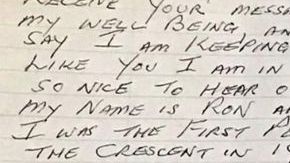 RECEIVE YOUR MESSA
MY WELL BEING, AN
SAY I AM KEEPING
LIKE YOU I AM IN
SO NICE TO HEAR O
MY NAME IS RON A
I WAS THE FIRST P
THE CRESCENT IN 19